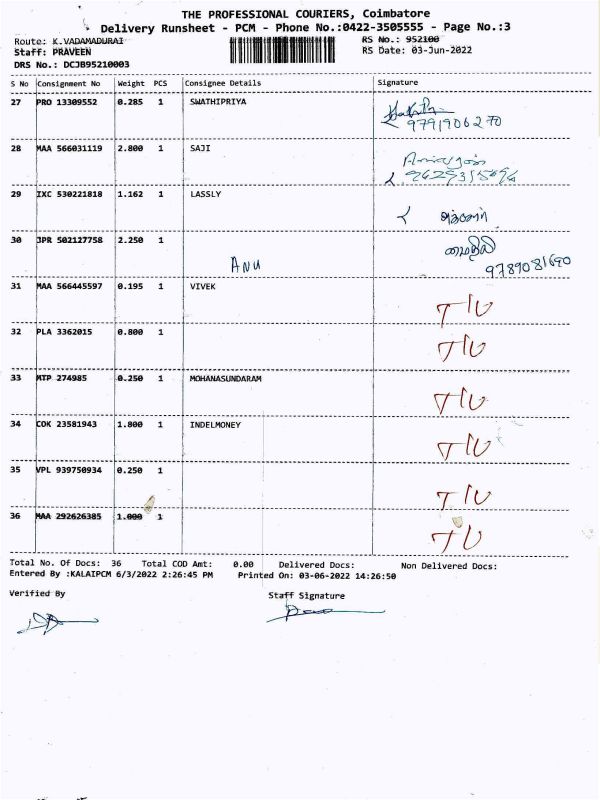 THE PROFESSIONAL COURIERS, Coimbatore
Delivery Runsheet - PCM - Phone No.:0422-3505555 - Page No.:3
Route: K.VADAMADURAI RS No.: 952100
Staff: PRAVEEN RS Date: 03-Jun-2022
DRS No.: DCJB95210003
S No Consignment No Weight PCS Consignee Details Signature
27 PRO 13309552 0.285 1 SWATHIPRIYA
9791906270
28 MAA 566031119 2.800 1 SAJI
29 IXC 530221818 1.162 1 LASSLY
30 JPR 502127758 2.250 1
ANU 9789081690
31 MAA 566445597 0.195 1 VIVEK
T/U
32 PLA 3362015 0.800 1
T/U
33 MTP 274985 0.250 1 MOHANASUNDARAM
T/U
34 COK 23581943 1.800 1 INDELMONEY
T/U
35 VPL 939750934 0.250 1
T/U
36 MAA 292626385 1.000 1
T/U
Total No. Of Docs: 36 Total COD Amt: 0.00 Delivered Docs: Non Delivered Docs:
Entered By :KALAIPCM 6/3/2022 2:26:45 PM Printed On: 03-06-2022 14:26:50
Verified By Staff Signature